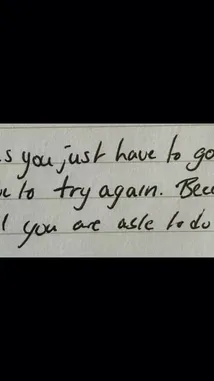 s you just have to go
to try again. Bec
you are asle to do